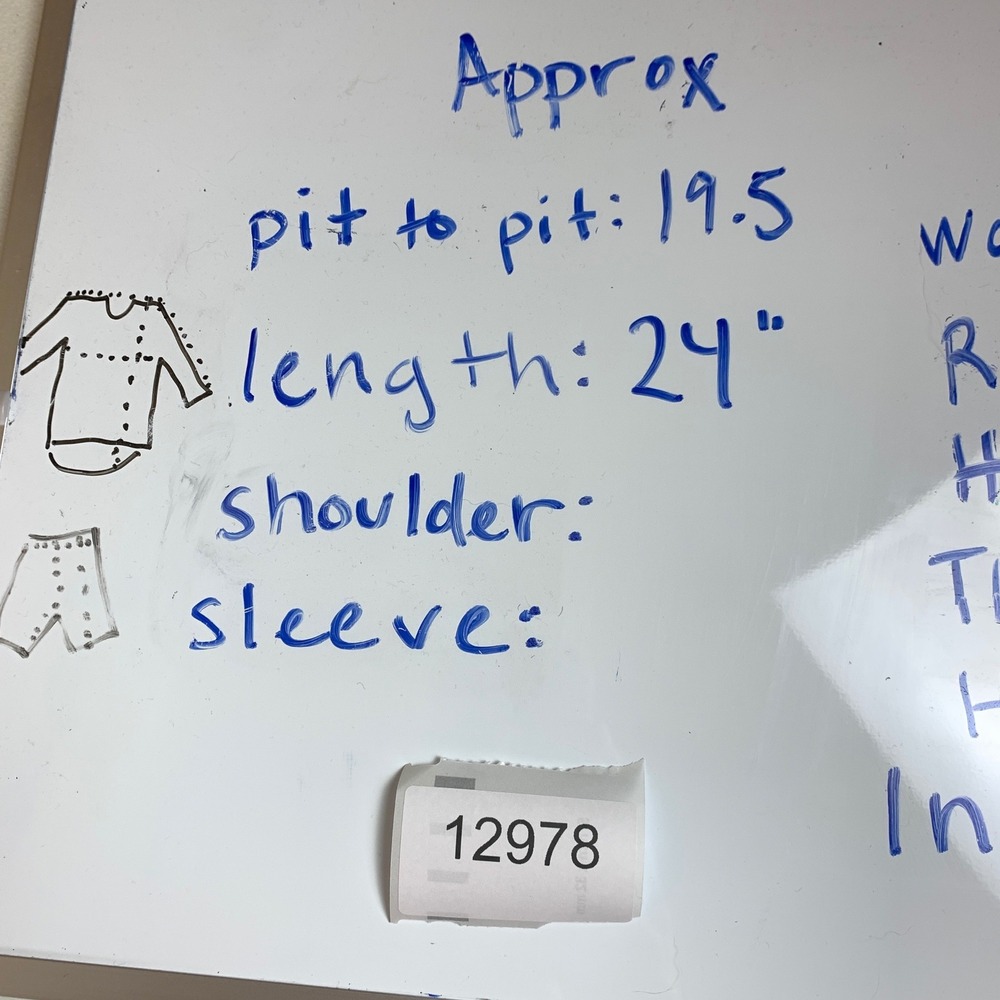 Approx
pit to pit: 19.5
length: 24"
shoulder:
sleeve:
12978
In